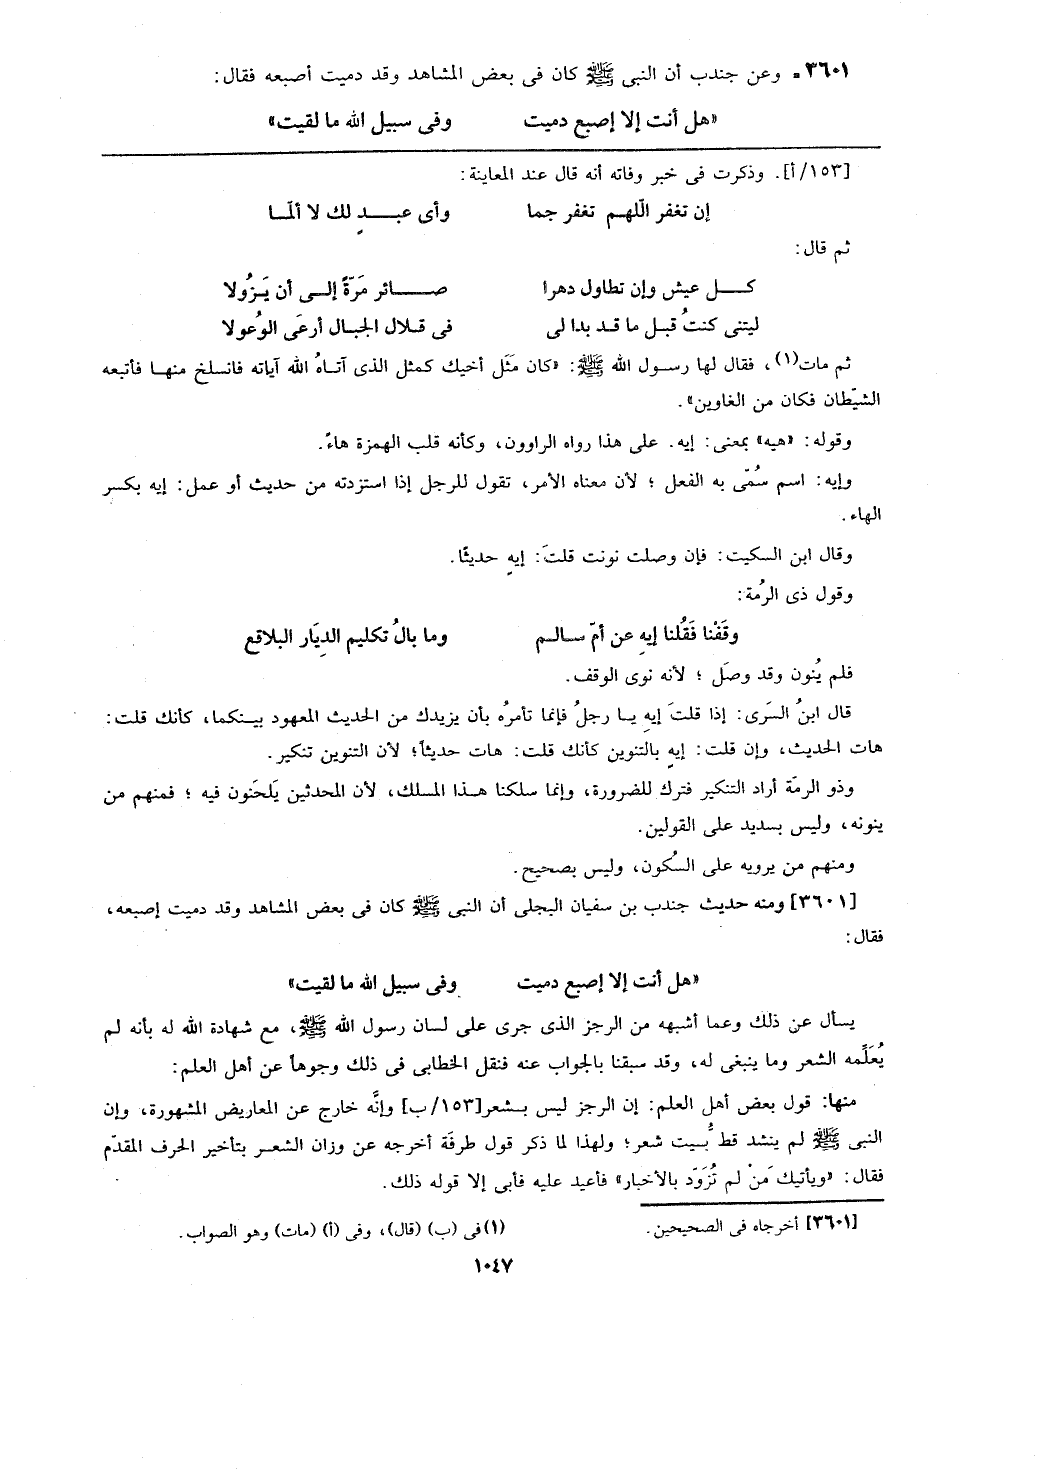 ٣٦٠١ - وعن جندب أن النبى ﷺ كان فى بعض المشاهد وقد دميت أصبعه فقال:
«هل أنت إلا إصبع دميت وفى سبيل الله ما لقيت»
[١٥٣/أ]. وذكرت فى خبر وفاته أنه قال عند المعاينة:
إن تغفر اللّهم تغفر جما وأى عبـــدٍ لك لا ألمّـا
ثم قال:
كـــل عيش وإن تطاول دهرا صـــائر مَرّةً إلـى أن يَـزُولا
ليتنى كنتُ قبل ما قـد بدا لى فى قـلال الجبـال أرعَى الوُعولا
ثم مات(١)، فقال لها رسـول الله ﷺ: «كان مَثَل أخيك كمثل الذى آتـاهُ الله آياته فانسلخ منهـا فأتبعه
الشيّطان فكان من الغاوين».
وقوله: «هيه» بمعنى: إيه. على هذا رواه الراوون، وكأنه قلب الهمزة هاءً.
وإيه: اسم سُمّى به الفعل ؛ لأن معناه الأمر، تقول للرجل إذا استزدته من حديث أو عمل: إيه بكسر
الهاء.
وقال ابن السكيت: فإن وصلت نونت قلتَ: إيهٍ حديثًا.
وقول ذى الرُمة:
وقَفْنا فَقُلنا إيهِ عن أمّ سـالـم وما بالُ تكليم الديَار البلاقع
فلم يُنون وقد وصَل ؛ لأنه نوى الوقف.
قال ابنُ السَرى: إذا قلتَ إيهِ يـا رجلُ فإنما تأمرُه بأن يزيدك من الحديث المعهود بيـنكمـا، كأنك قلت:
هات الحديث، وإن قلت: إيهٍ بالتنوين كأنك قلت: هات حديثاً؛ لأن التنوين تنكير.
وذو الرمَة أراد التنكير فترك للضرورة، وإنما سلكنا هـذا المسلك، لأن المحدثين يَلحَنون فيه ؛ فمنهم من
ينونه، وليس بسديد على القولين.
ومنهم من يرويه على السكُون، وليس بصحيح.
[٣٦٠١] ومنه حديث جندب بن سفيان البجلى أن النبى ﷺ كان فى بعض المشاهد وقد دميت إصبعه،
فقال:
«هل أنت إلا إصبع دميت وفى سبيل الله ما لقيت»
يسأل عن ذلك وعما أشبهه من الرجز الذى جرى على لسان رسول الله ﷺ، مع شهادة الله له بأنه لم
يُعَلِّمه الشعر وما ينبغى له، وقد سبقنا بالجواب عنه فنقل الخطابى فى ذلك وجوهاً عن أهل العلم:
منها: قول بعض أهل العلم: إن الرجز ليس بـشعر[١٥٣/ب] وإنَّه خارج عن المعاريض المشهورة، وإن
النبى ﷺ لم ينشد قط بُّـيت شعر؛ ولهذا لما ذكر قول طرفَة أخرجه عن وزان الشعـر بتأخير الحرف المقدّم
فقال: «ويأتيك مَنْ لم تُزَوّد بالأخبار» فأعيد عليه فأبى إلا قوله ذلك.
[٣٦٠١] أخرجاه فى الصحيحين. (١) فى (ب) (قال)، وفى (أ) (مات) وهو الصواب.
١٠٤٧